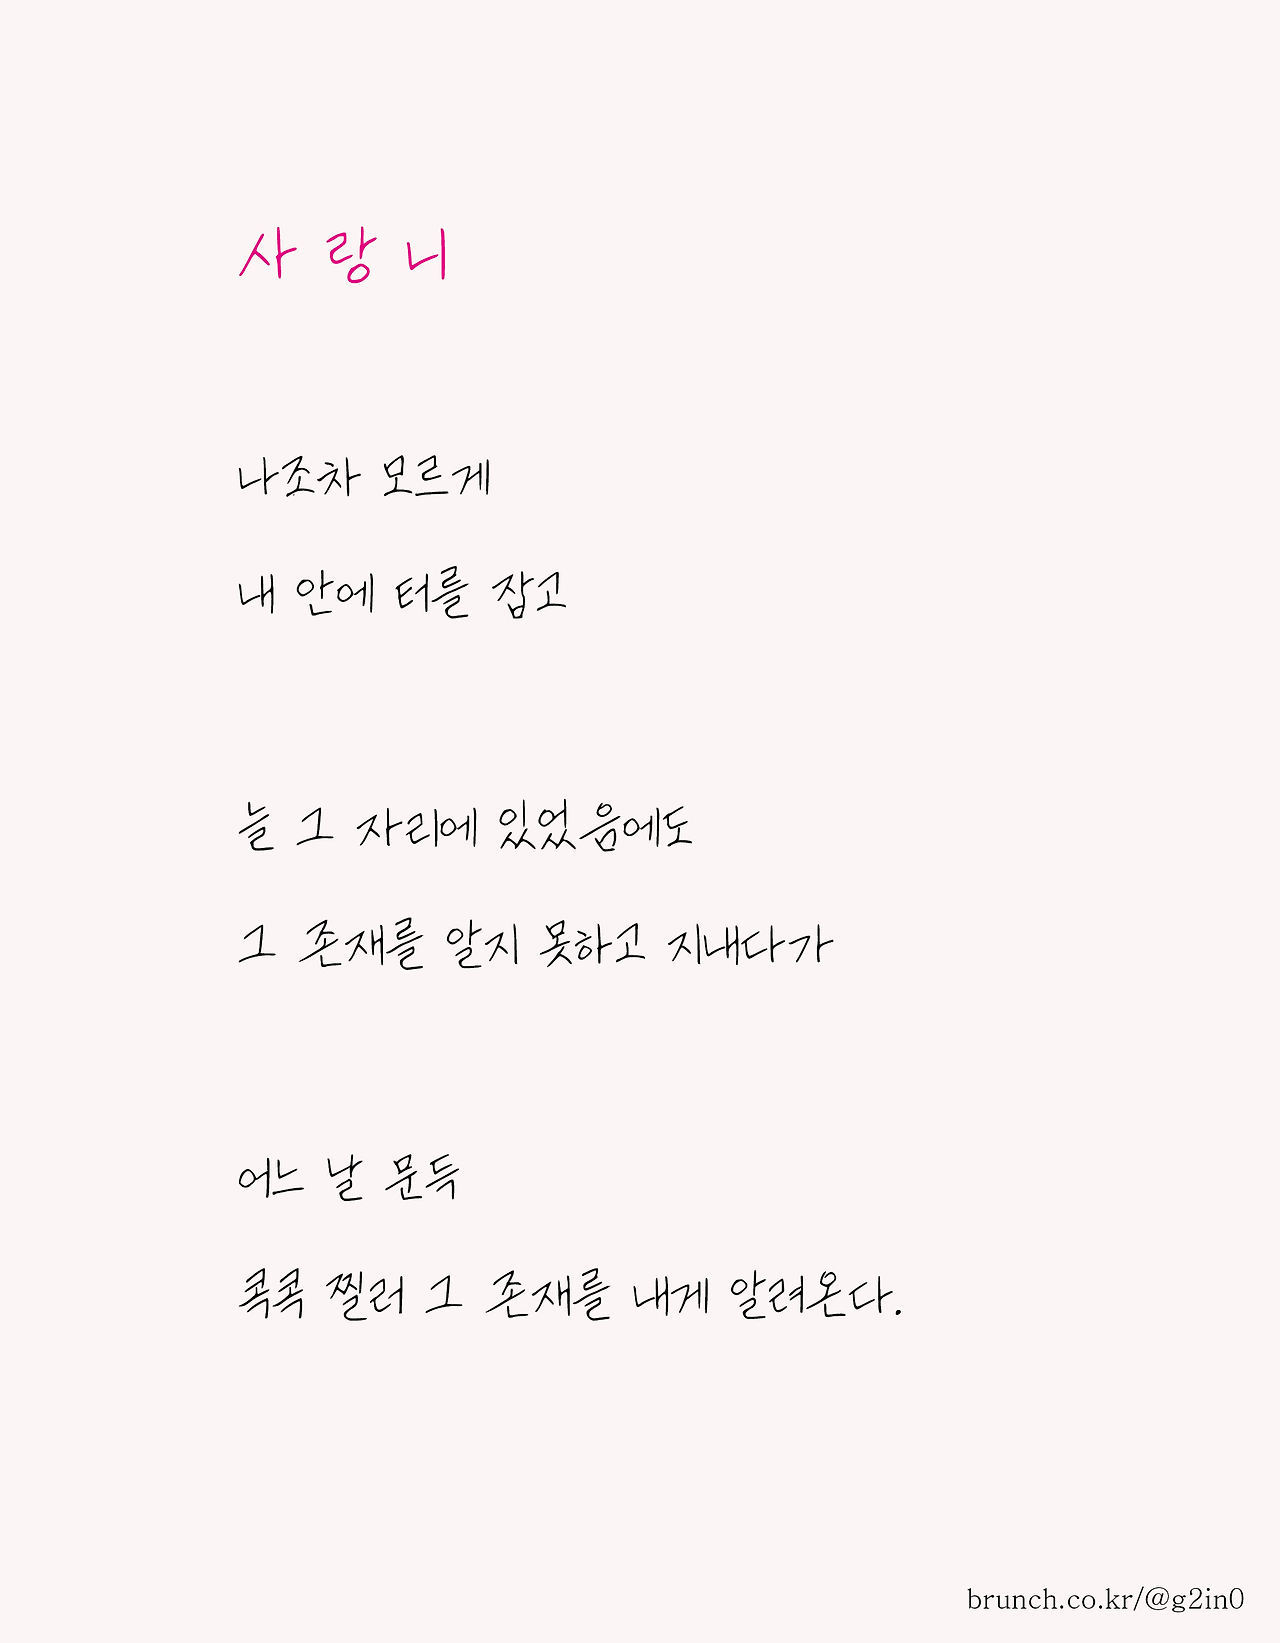 사 랑 니
나조차 모르게
내 안에 터를 잡고
늘 그 자리에 있었음에도
그 존재를 알지 못하고 지내다가
어느 날 문득
콕콕 찔러 그 존재를 내게 알려온다.
brunch.co.kr/@g2in0